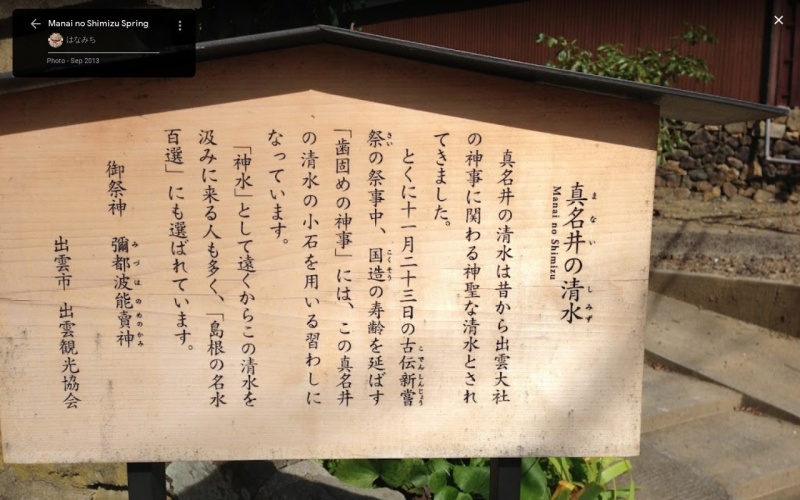 Manai no Shimizu Spring
はなみち
Photo - Sep 2013
真名井の清水
まないしみず
Manai no Shimizu
真名井の清水は昔から出雲大社
の神事に関わる神聖な清水とされ
てきました。
とくに十一月二十三日の古伝新嘗
こでんしんじょう
祭の祭事中、国造の寿齢を延ばす
さいこくそう
「歯固めの神事」には、この真名井
の清水の小石を用いる習わしに
なっています。
「神水」として遠くからこの清水を
汲みに来る人も多く、「島根の名水
百選」にも選ばれています。
御祭神 彌都波能賣神
みづはのめのかみ
出雲市 出雲観光協会